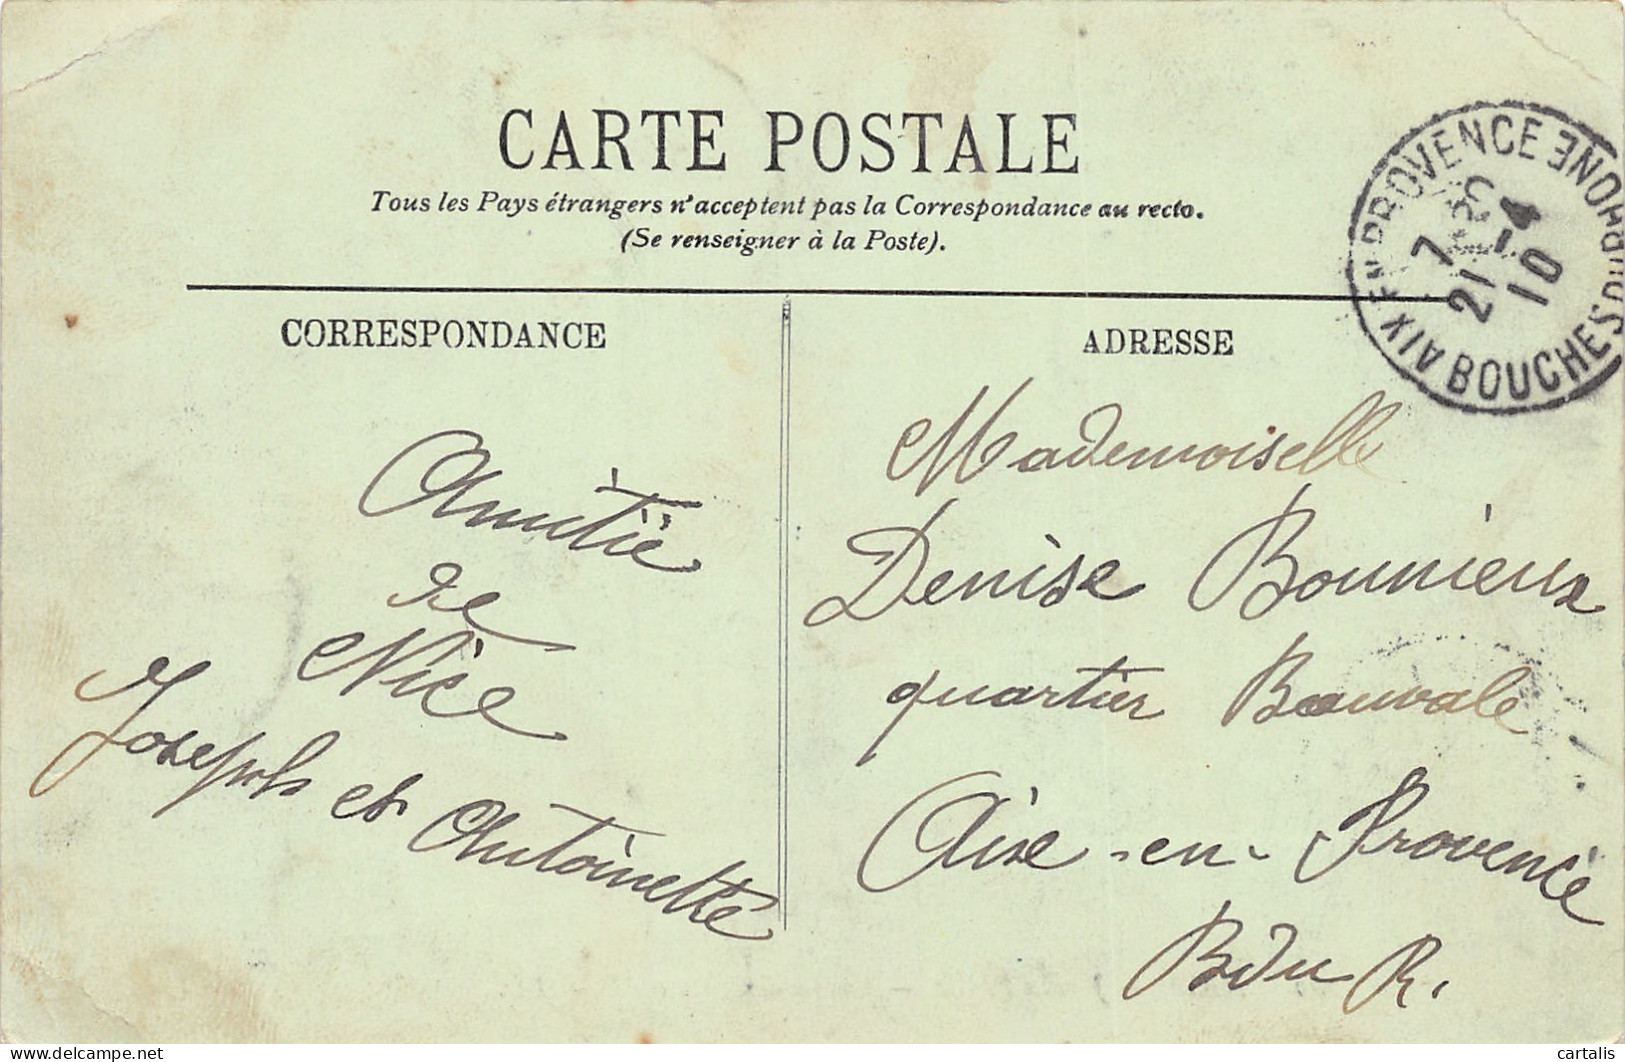 CARTE POSTALE
Tous les Pays étrangers n'acceptent pas la Correspondance au recto.
(Se renseigner à la Poste).
CORRESPONDANCE
ADRESSE
AIX EN PROVENCE
7
21 -4
10
BOUCHES DU RHONE
Amitié
de
Nice
Joseph et Antoinette
Mademoiselle
Denise Bonnieux
quartier Beauvale
Aix-en-Provence
B du R.
delcampe.net
cartalis